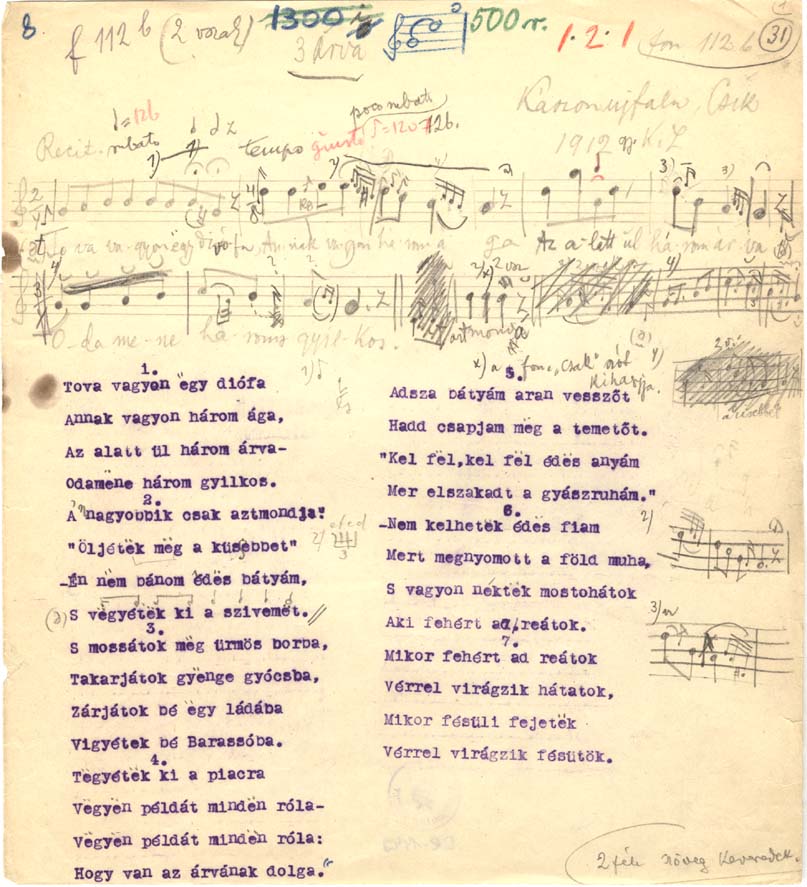 8.
f 112 b (2 versz)
1300
500 r.
1
31
3 árva
1.2.1
fon 112 b
Kászonujfalu, Csík
1912 gy. K. Z.
♩=126
poco rubato
Recit. rubato
tempo giusto
♪=120
126.
Tova va-gyon ëgy diófa, Annak vagyon három á ga Az a-latt ül há-rom ár-va
O-da mé-ne há-rom gyil-kos.
2 vsz
aztmondja
x) a fon. "csak" szót
kihagyja.
1.
Tova vagyon ëgy diófa
Annak vagyon három ága,
Az alatt ül három árva-
Odamëne három gyilkos.
2.
A nagyobbik csak aztmondja:
"Öljétëk mëg a küsebbet"
-Én nëm bánom édës bátyám,
S vëgyétëk ki a szivemët.
3.
S mossátok mëg ürmös borba,
Takarjátok gyënge gyócsba,
Zárjátok bé ëgy ládába
Vigyétek bé Barassóba.
4.
Tëgyétëk ki a piacra
Vëgyën példát mindën róla-
Vëgyën példát mindën róla:
Hogy van az árvának dolga."
5.
Adsza bátyám aran vesszőt
Hadd csapjam mëg a temetőt.
"Kel fël,kel fël édës anyám
Mer elszakadt a gyászruhám."
6.
-Nem kelhetëk édës fiam
Mert megnyomott a föld muha,
S vagyon nëktëk mostohátok
Aki fehért ad reátok.
7.
Mikor fehért ad reátok
Vérrel virágzik hátatok,
Mikor fésüli fejetëk
Vérrel virágzik fésütök.
a küsebbet
2)
3)
2 féle szöveg keveredett.